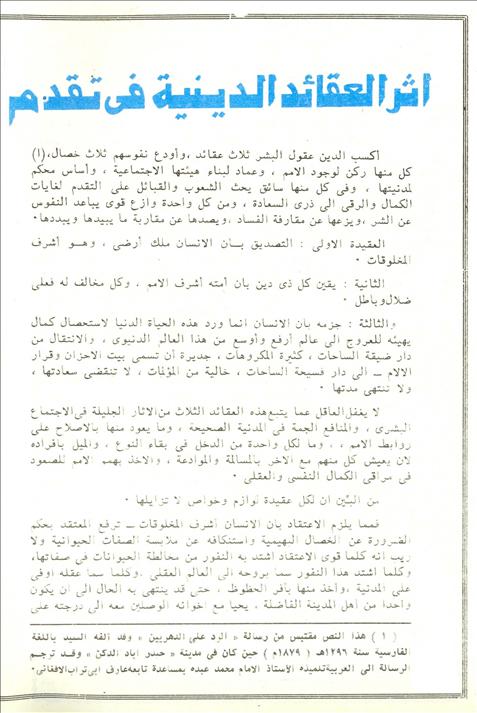 اثر العقائد الدينية فى تقدم
أكسب الدين عقول البشر ثلاث عقائد ،وأودع نفوسهم ثلاث خصال،(١)
كل منها ركن لوجود الامم ، وعماد لبناء هيئتها الاجتماعية ، وأساس محكم
لمدنيتها ، وفى كل منها سائق يحث الشعوب والقبائل على التقدم لغايات
الكمال والرقى الى ذرى السعادة ، ومن كل واحدة وازع قوى يباعد النفوس
عن الشر ،ويزعها عن مقارفة الفساد ،ويصدها عن مقاربة ما يبيدها ويبددها.
العقيدة الاولى : التصديق بان الانسان ملك أرضى ، وهو أشرف
المخلوقات .
الثانية : يقين كل ذى دين بان أمته أشرف الامم ، وكل مخالف له فعلى
ضلال وباطل .
والثالثة : جزمه بان الانسان انما ورد هذه الحياة الدنيا لاستحصال كمال
يهيئه للعروج الى عالم أرفع وأوسع من هذا العالم الدنيوى ، والانتقال من
دار ضيقة الساحات ، كثيرة المكروهات ، جديرة أن تسمى بيت الاحزان وقرار
الالام ــ الى دار فسيحة الساحات ، خالية من المؤلمات ، لا تنقضى سعادتها ،
ولا تنتهى مدتها .
لا يغفل العاقل عما يتبع هذه العقائد الثلاث من الاثار الجليلة فى الاجتماع
البشرى ، والمنافع الجمة فى المدنية الصحيحة ، وما يعود منها بالاصلاح على
روابط الامم ، ، وما لكل واحدة من الدخل فى بقاء النوع ، والميل بافراده
لان يعيش كل منهم مع الاخر بالمسالمة والموادعة ، والاخذ بهمم الامم للصعود
فى مراقى الكمال النفسى والعقلى .
من البيّن ان لكل عقيدة لوازم وخواص لا تزايلها .
فمما يلزم الاعتقاد بان الانسان أشرف المخلوقات ــ ترفع المعتقد بحكم
الضرورة عن الخصال البهيمية واستنكافه عن ملابسة الصفات الحيوانية ولا
ريب انه كلما قوى الاعتقاد اشتد به النفور من مخالطة الحيوانات فى صفاتها،
وكلما اشتد هذا النفور سما بروحه الى العالم العقلى .وكلما سما عقله اوفى
على المدنية ،وأخذ منها بأفر الحظوظ ، حتى قد ينتهى به الحال الى ان يكون
واحدا من أهل المدينة الفاضلة ، يحيا مع اخوانه الوصلين معه الى درجته على
( ١ ) هذا النص مقتبس من رسالة « الرد على الدهريين » وقد ألفه السيد باللغة
الفارسية سنة ١٢٩٦هـ ( ١٨٧٩م ) حين كان فى مدينة « حيدر اباد الدكن » وقد ترجم
الرسالة الى العربية تلميذه الاستاذ الامام محمد عبده بمساعدة تابعه عارف ابى تراب الافغانى.